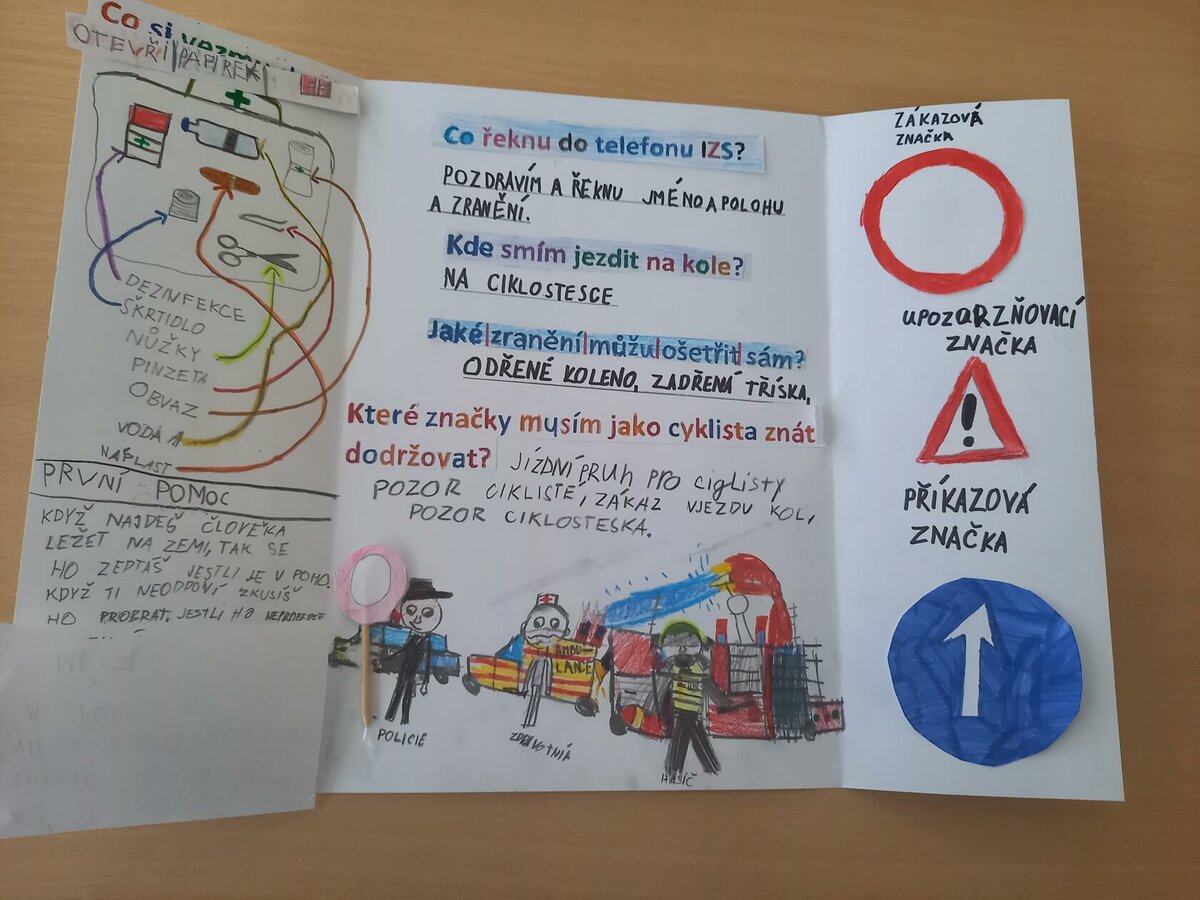 Co si vezmu
OTEVŘI PAPÍREK
DEZINFEKCE
ŠKRTIDLO
NŮŽKY
PINZETA
OBVAZ
VODA A
NÁPLAST
PRVNÍ POMOC
KDYŽ NAJDEŠ ČLOVĚKA
LEŽET NA ZEMI, TAK SE
HO ZEPTÁŠ JESTLI JE V POHO.
KDYŽ TI NEODPOVÍ ZKUSIŠ
HO PROBRAT. JESTLI HO
Co řeknu do telefonu IZS?
POZDRAVÍM A ŘEKNU JMÉNO A POLOHU
A ZRANĚNÍ.
Kde smím jezdit na kole?
NA CIKLOSTESCE
Jaké zranění můžu ošetřit sám?
ODŘENÉ KOLENO, ZADŘENÁ TŘÍSKA,
Které značky musím jako cyklista znát
dodržovat?
JÍZDNÍ PRUH PRO CIGLISTY
POZOR CIKLISTÉ, ZÁKAZ VJEZDU KOL,
POZOR CIKLOSTESKA.
AMBU-
LANCE
POLICIE
ZDRAVOTNÍA
HASIČ
ZÁKAZOVÁ
ZNAČKA
UPOZORZŇOVACÍ
ZNAČKA
!
PŘÍKAZOVÁ
ZNAČKA